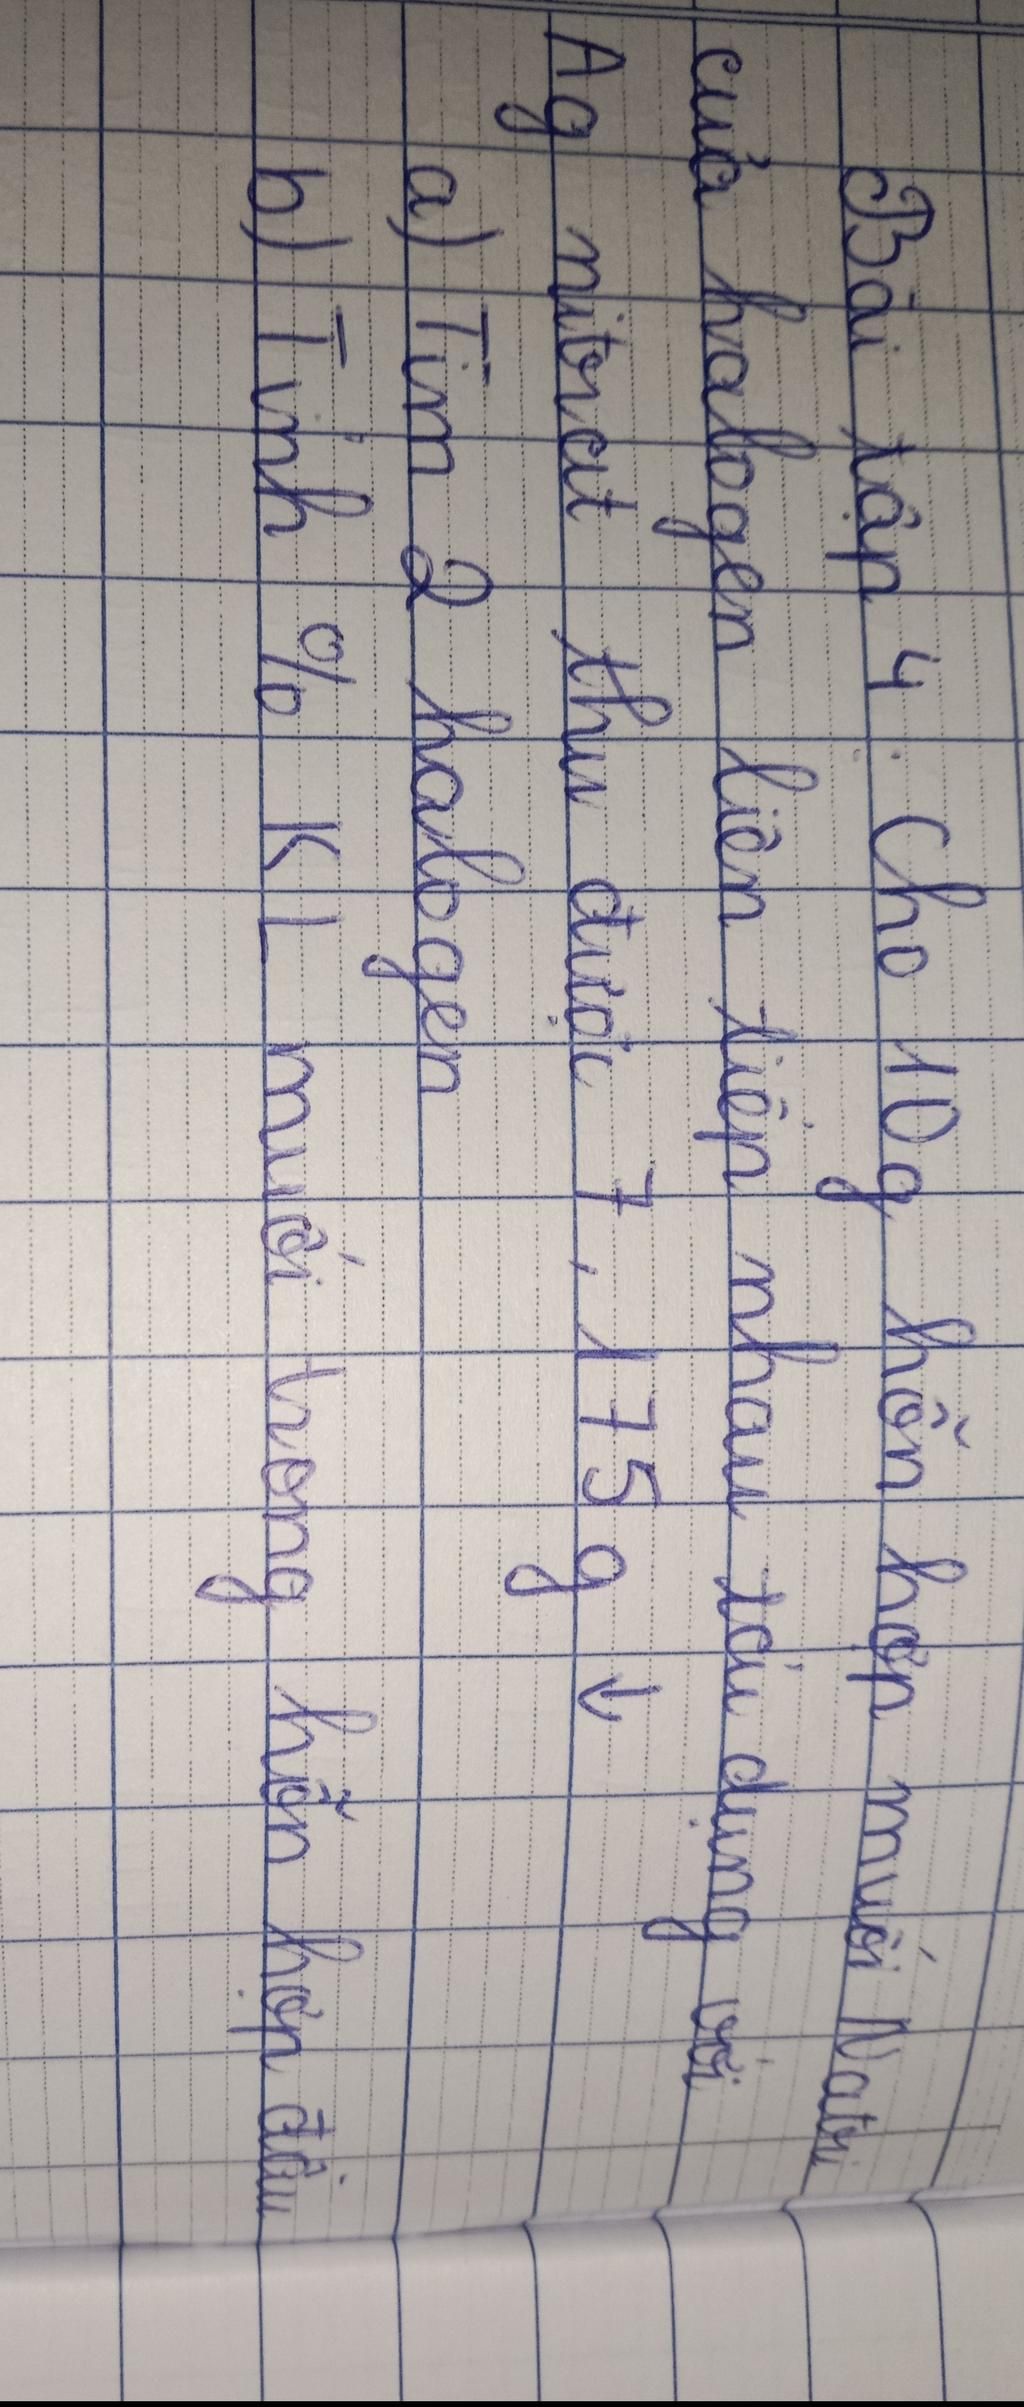 Bài tập 4: Cho 10g hỗn hợp muối Natri
của halogen liên tiếp nhau tác dụng với
Ag nitorat thu được 7,175g ↓
a) Tìm 2 halogen
b) Tính % KL muối trong hỗn hợp đầu